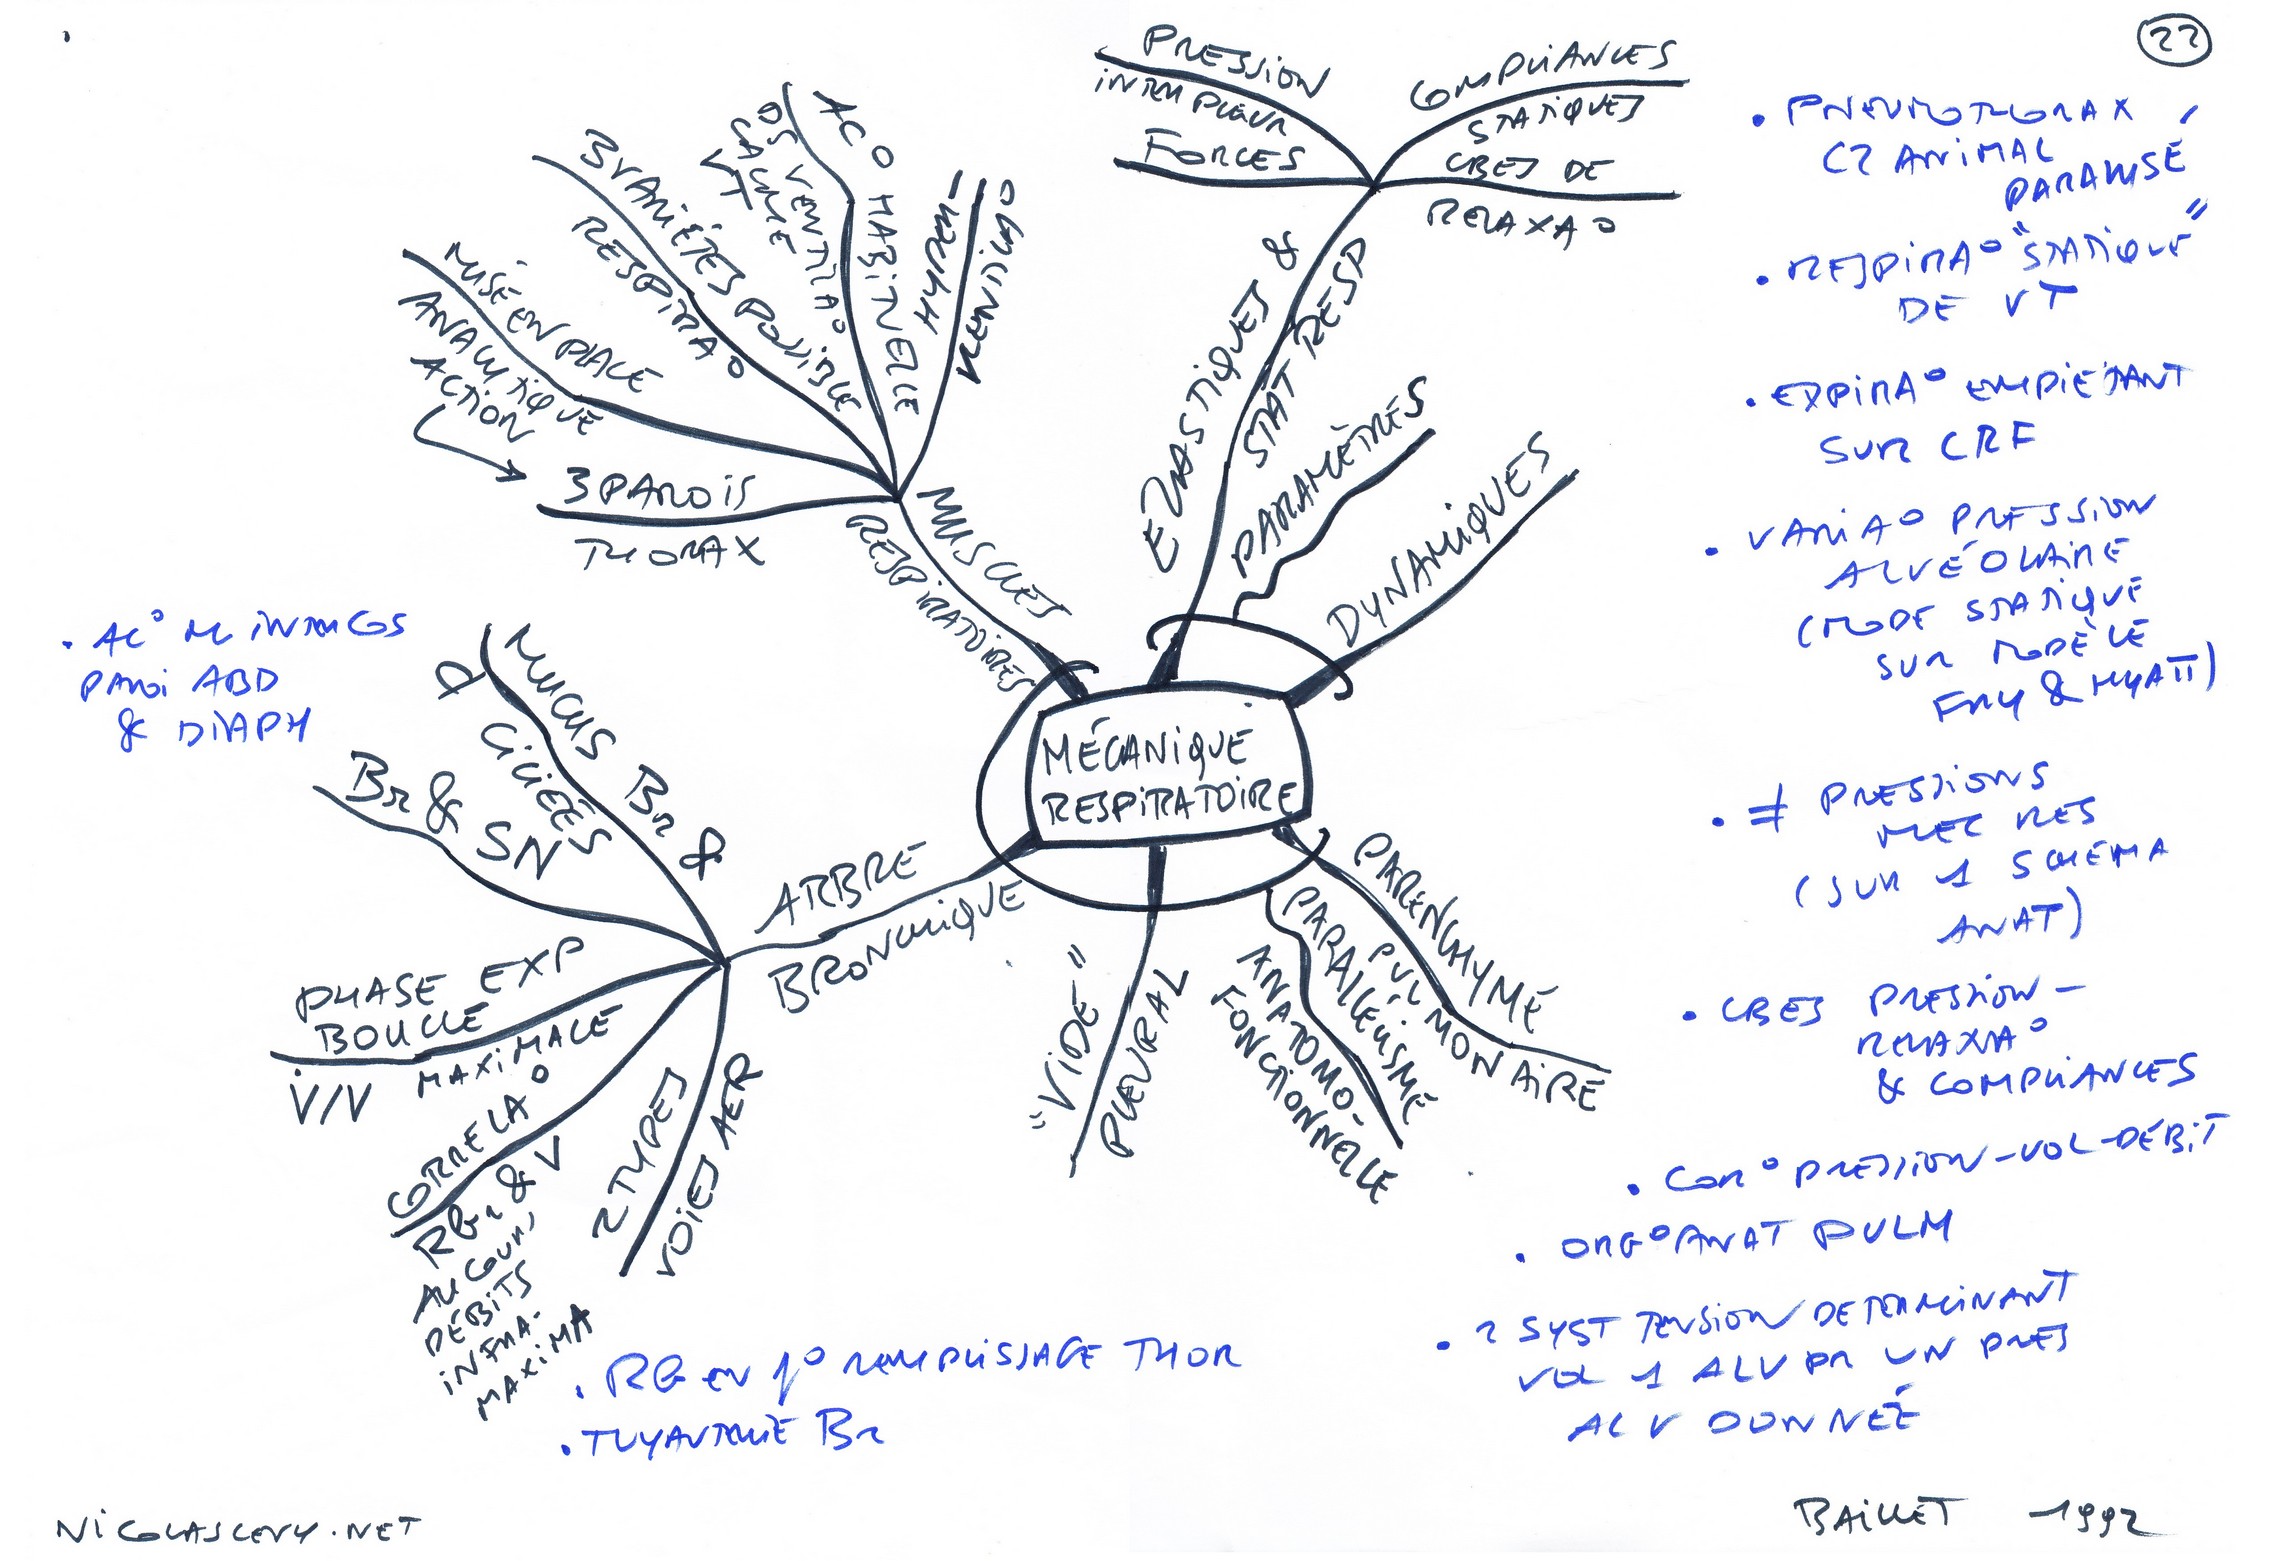 22
PRESSION
INTRAPLEUR
FORCES
COMPLIANCES
STATIQUES
CBES DE
RELAXA°
ELASTIQUES &
STAT RESP
PARAMÈTRES
DYNAMIQUES
MUSCLES
RESPIRATOIRES
HYPER-
VENTILA°
AC° HABITUELLE
DS VENTILA°
CALME
VT
3 VARIÉTÉS POSSIBLE
RESPIRA°
MISE EN PLACE
ANALYTIQUE
ACTION
3 PAROIS
THORAX
MÉCANIQUE
RESPIRATOIRE
ARBRE
BRONCHIQUE
MUCUS BR &
CILIÉES
BR & SN
PHASE EXP
BOUCLE
MAXIMALE
V̇/V
CORRELA°
RBR & V
AU COURS
DÉBITS
INFRA-
MAXIMA
2 TYPES
VOIES AER
"VIDE"
PLEURAL
PARENCHYME
PULMONAIRE
PARALLÉLISME
ANATOMO-
FONCTIONNELLE
• AC° M INTERCOS
PAROI ABD
& DIAPH
• PNEUMOTHORAX
CZ ANIMAL
PARALYSÉ
• RESPIRA° "STATIQUE"
DE VT
• EXPIRA° EMPIÉTANT
SUR CRF
• VARIA° PRESSION
ALVÉOLAIRE
(MODE STATIQUE
SUR MODÈLE
FRY & HYATT)
• ≠ PRESSIONS
MEC RES
(SUR 1 SCHÉMA
ANAT)
• CBES PRESSION-
RELAXA°
& COMPLIANCES
• COR° PRESSION-VOL-DÉBIT
• ORG° ANAT PULM
• 2 SYST TENSION DETERMINANT
VOL 1 ALV PR UN PRES
ALV DONNÉE
• RB EN f° REMPLISSAGE THOR
• TUYAUTERIE BR
NICOLASLEVY.NET
BAILLET 1992